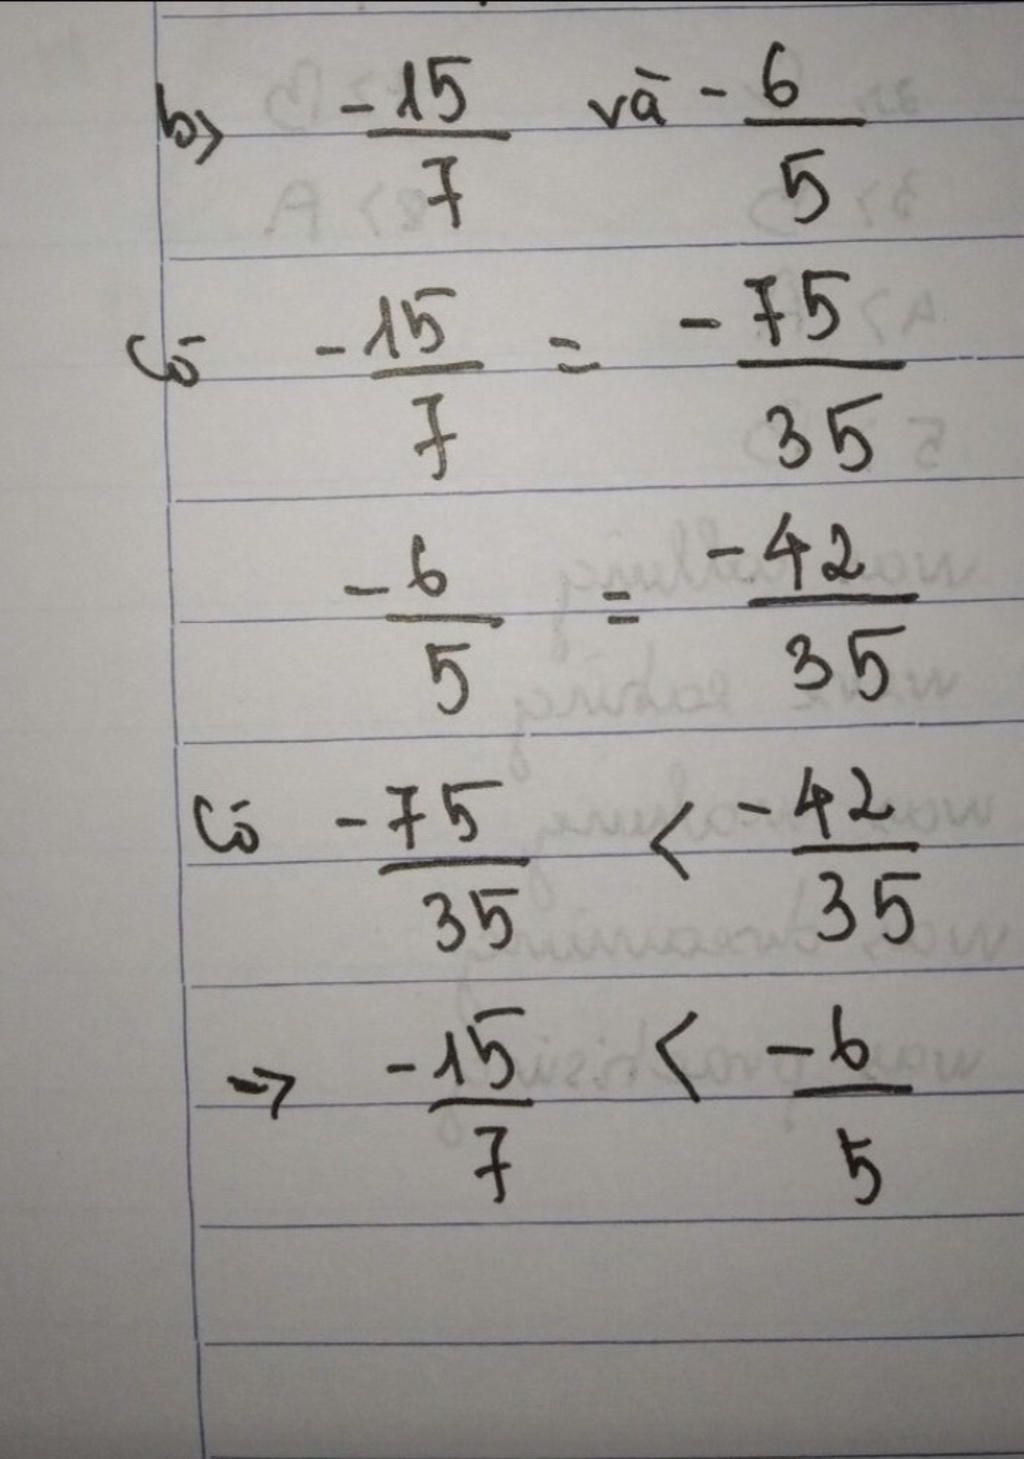 b) -15/7 và -6/5
Có -15/7 = -75/35
-6/5 = -42/35
Có -75/35 < -42/35
→ -15/7 < -6/5